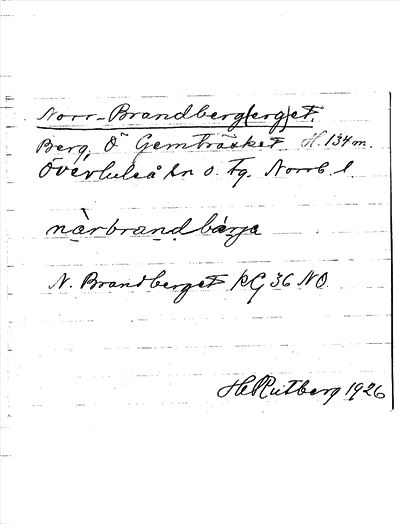 Norr-Brandberg(erg)et.
Berg, Ö Gemträsket H. 134 m.
Överluleå sn o. tg. Norrb. l.
når̀brandbärje
N. Brandberget KG 36 NO.
H Rutberg 1926